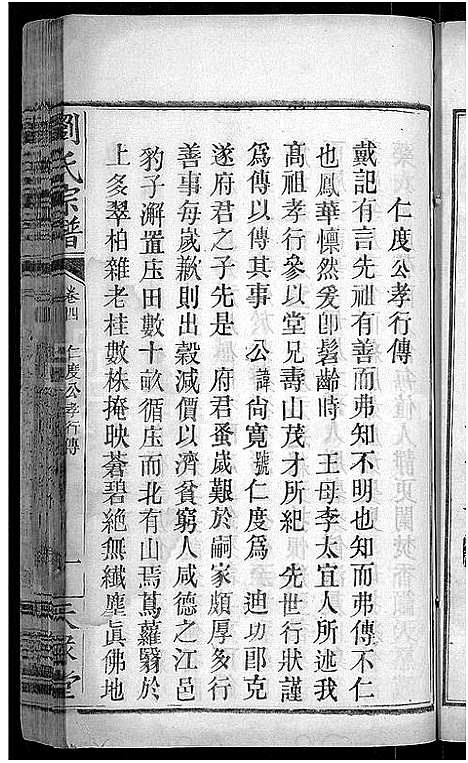 仁度公孝行傳
戴記有言先祖有善而弗知不明也知而弗傳不仁
也鳳華懍然爰卽髫齡時 王母李太宜人所述我
高祖孝行參以堂兄壽山茂才所紀 先世行狀謹
爲傳以傳其事 公諱尙寬號仁度爲 迪功郎克
遂府君之子先是 府君蚤歲艱於嗣家頗厚多行
善事每歲歉則出穀減價以濟貧窮人咸德之江邑
豹子澥置庄田數十畝循庄而北有山焉蔦蘿翳於
上多翠柏雜老桂數株掩映蒼碧絶無纖塵眞佛地
劉氏宗譜
卷四
仁度公孝行傳
一
天祿堂